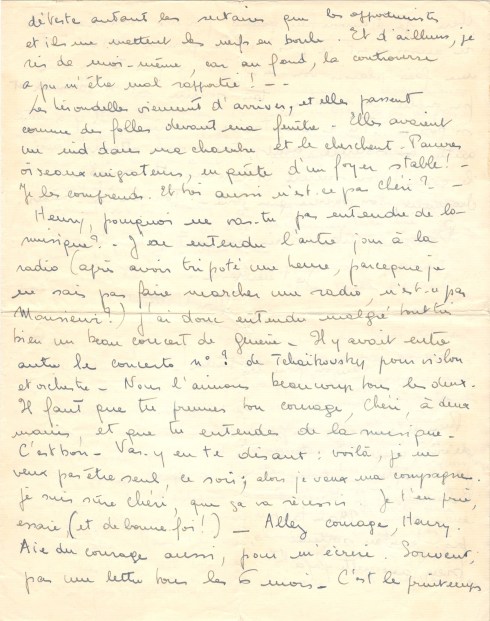 déteste autant les sectaires que les opportunistes
et ils me mettent les nerfs en boule. Et d'ailleurs, je
ris de moi-même, car au fond, la controverse
a pu m'être mal rapportée! - -
Les hirondelles viennent d'arriver, et elles passent
comme des folles devant ma fenêtre - Elles avaient
un nid dans ma chambre et le cherchent - Pauvres
oiseaux migrateurs, en quête d'un foyer stable! -
Je les comprends. Et toi aussi n'est-ce pas chéri? -
Henry, pourquoi ne vas-tu pas entendre de la
musique? - J'ai entendu l'autre jour à la
radio (après avoir tripoté une heure, parceque je
ne sais pas faire marcher une radio, n'est-ce pas
Monsieur?) j'ai donc entendu malgré tout très
bien un beau concert de - Il y avait entre
autre le concerto n° ? de Tchaïkovsky pour violon
et orchestre - Nous l'aimons beaucoup tous les deux.
Il faut que tu prennes ton courage, chéri, à deux
mains, et que tu entendes de la musique -
C'est bon - Vas-y en te disant: voilà, je ne
veux pas être seul, ce soir; alors je veux ma compagne.
je suis sûre chéri, que ça va réussir. Je t'en prie,
essaie, (et de bonne foi!) - Allez courage, Henry.
Aie du courage aussi, pour m'écrire. Souvent,
pas une lettre tous les 6 mois - C'est le printemps